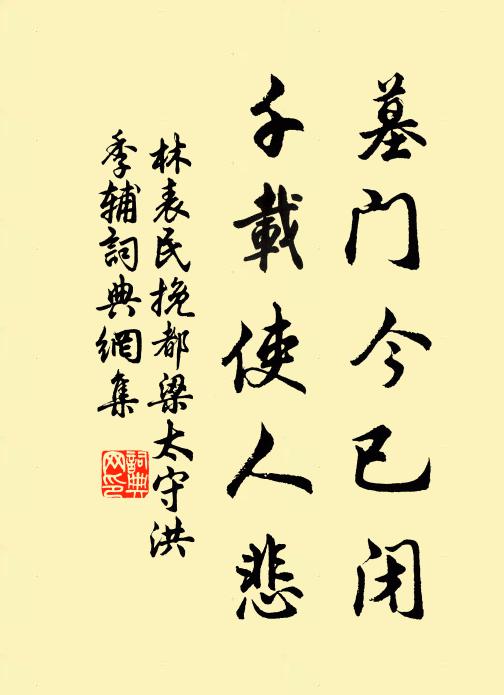 墓门今已闭
千載使人悲
林表民挽都梁太守洪
季辅詞典網集
詞典网印